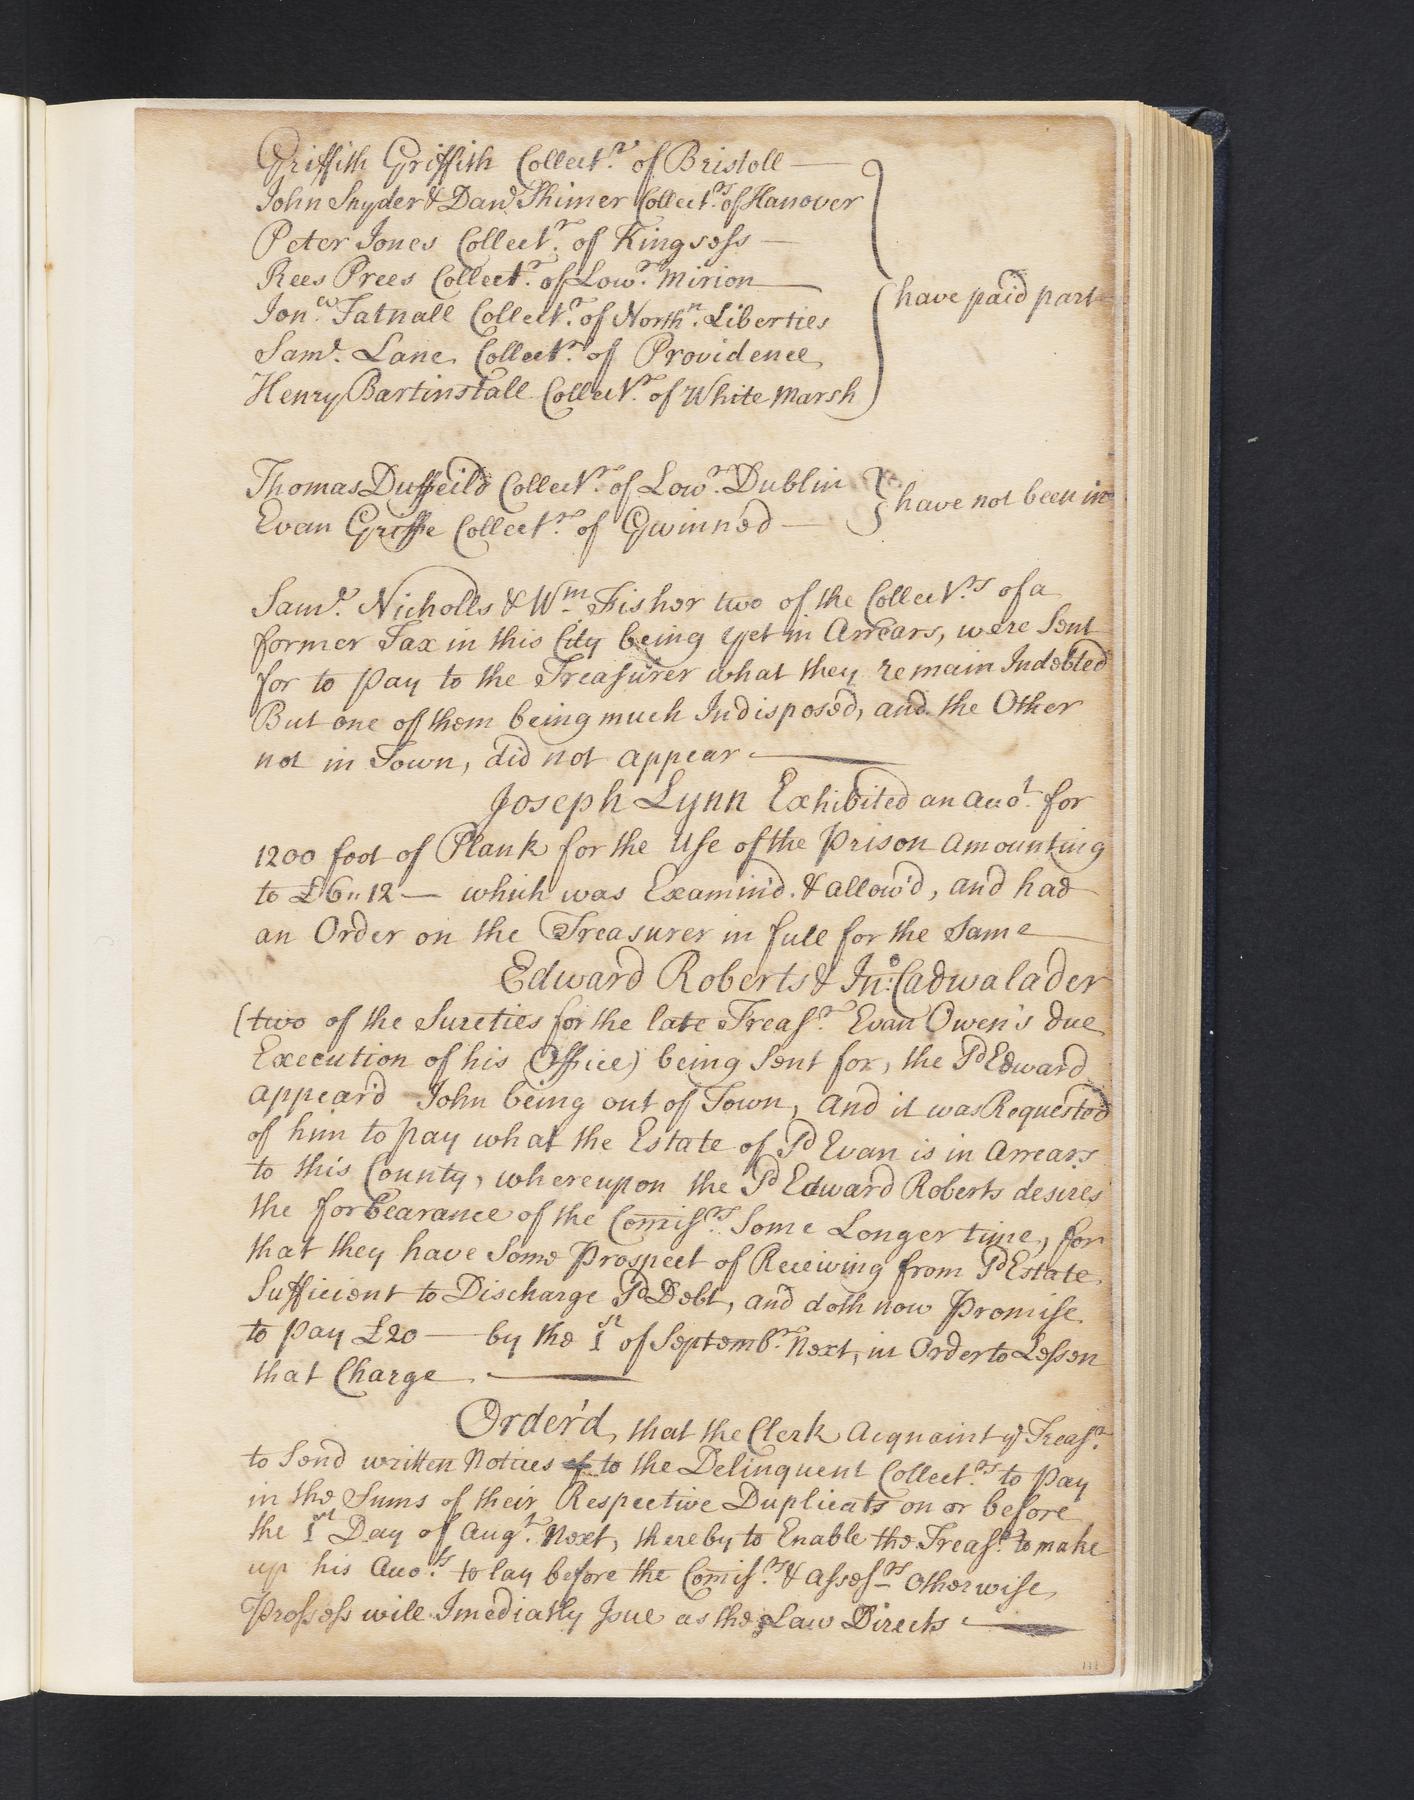 Griffith Griffith Collect.r of Bristoll —
John Snyder & Danl Shimer Collect.rs of Hanover
Peter Jones Collect.r of Kingsess —
Rees Prees Collect.r of Low.r Mirion —
Jon.a Tatnall Collect.r of North.n Liberties
Sam.l Lane Collect.r of Providence
Henry Bartinstall Collect.r of White Marsh
have paid part
Thomas Duffeild Collect.r of Low.r Dublin
Evan Griffe Collect.r of Gwinned —
have not been in
Sam.l Nicholls & Wm Fisher two of the Collect.rs of a
former Tax in this City being yet in Arrears, were Sent
for to pay to the Treasurer what they remain Indebted
But one of them being much Indisposed, and the Other
not in Town, did not appear —
Joseph Lynn Exhibited an Acco.t for
1200 foot of Plank for the Use of the Prison amounting
to £6"12— which was Examin'd. & allow'd, and had
an Order on the Treasurer in full for the Same —
Edward Roberts & Jno: Cadwalader
(two of the Sureties for the late Treas.r Evan Owen's due
Execution of his Office) being Sent for, the Sd Edward
appear'd John being out of Town, and it was Requested
of him to pay what the Estate of Sd Evan is in Arrears
to this County, whereupon the Sd Edward Roberts desires
the forbearance of the Comis.rs Some Longer time, for
that they have Some Prospect of Receiving from Sd Estate
Sufficient to Discharge Sd Debt, and doth now Promise
to pay £20 — by the 1st of Septemb.r Next, in Order to Lessen
that Charge —
Order'd, that the Clerk Acquaint ye Treas.r
to Send written Notices of to the Delinquent Collect.rs to pay
in the Sums of their Respective Duplicats on or before
the 1st Day of Aug.t Next, thereby to Enable the Treas.r to make
up his Acco.ts to lay before the Comis.rs & Asses.rs otherwise
Prossess will Imediatly Issue as the Law Directs —